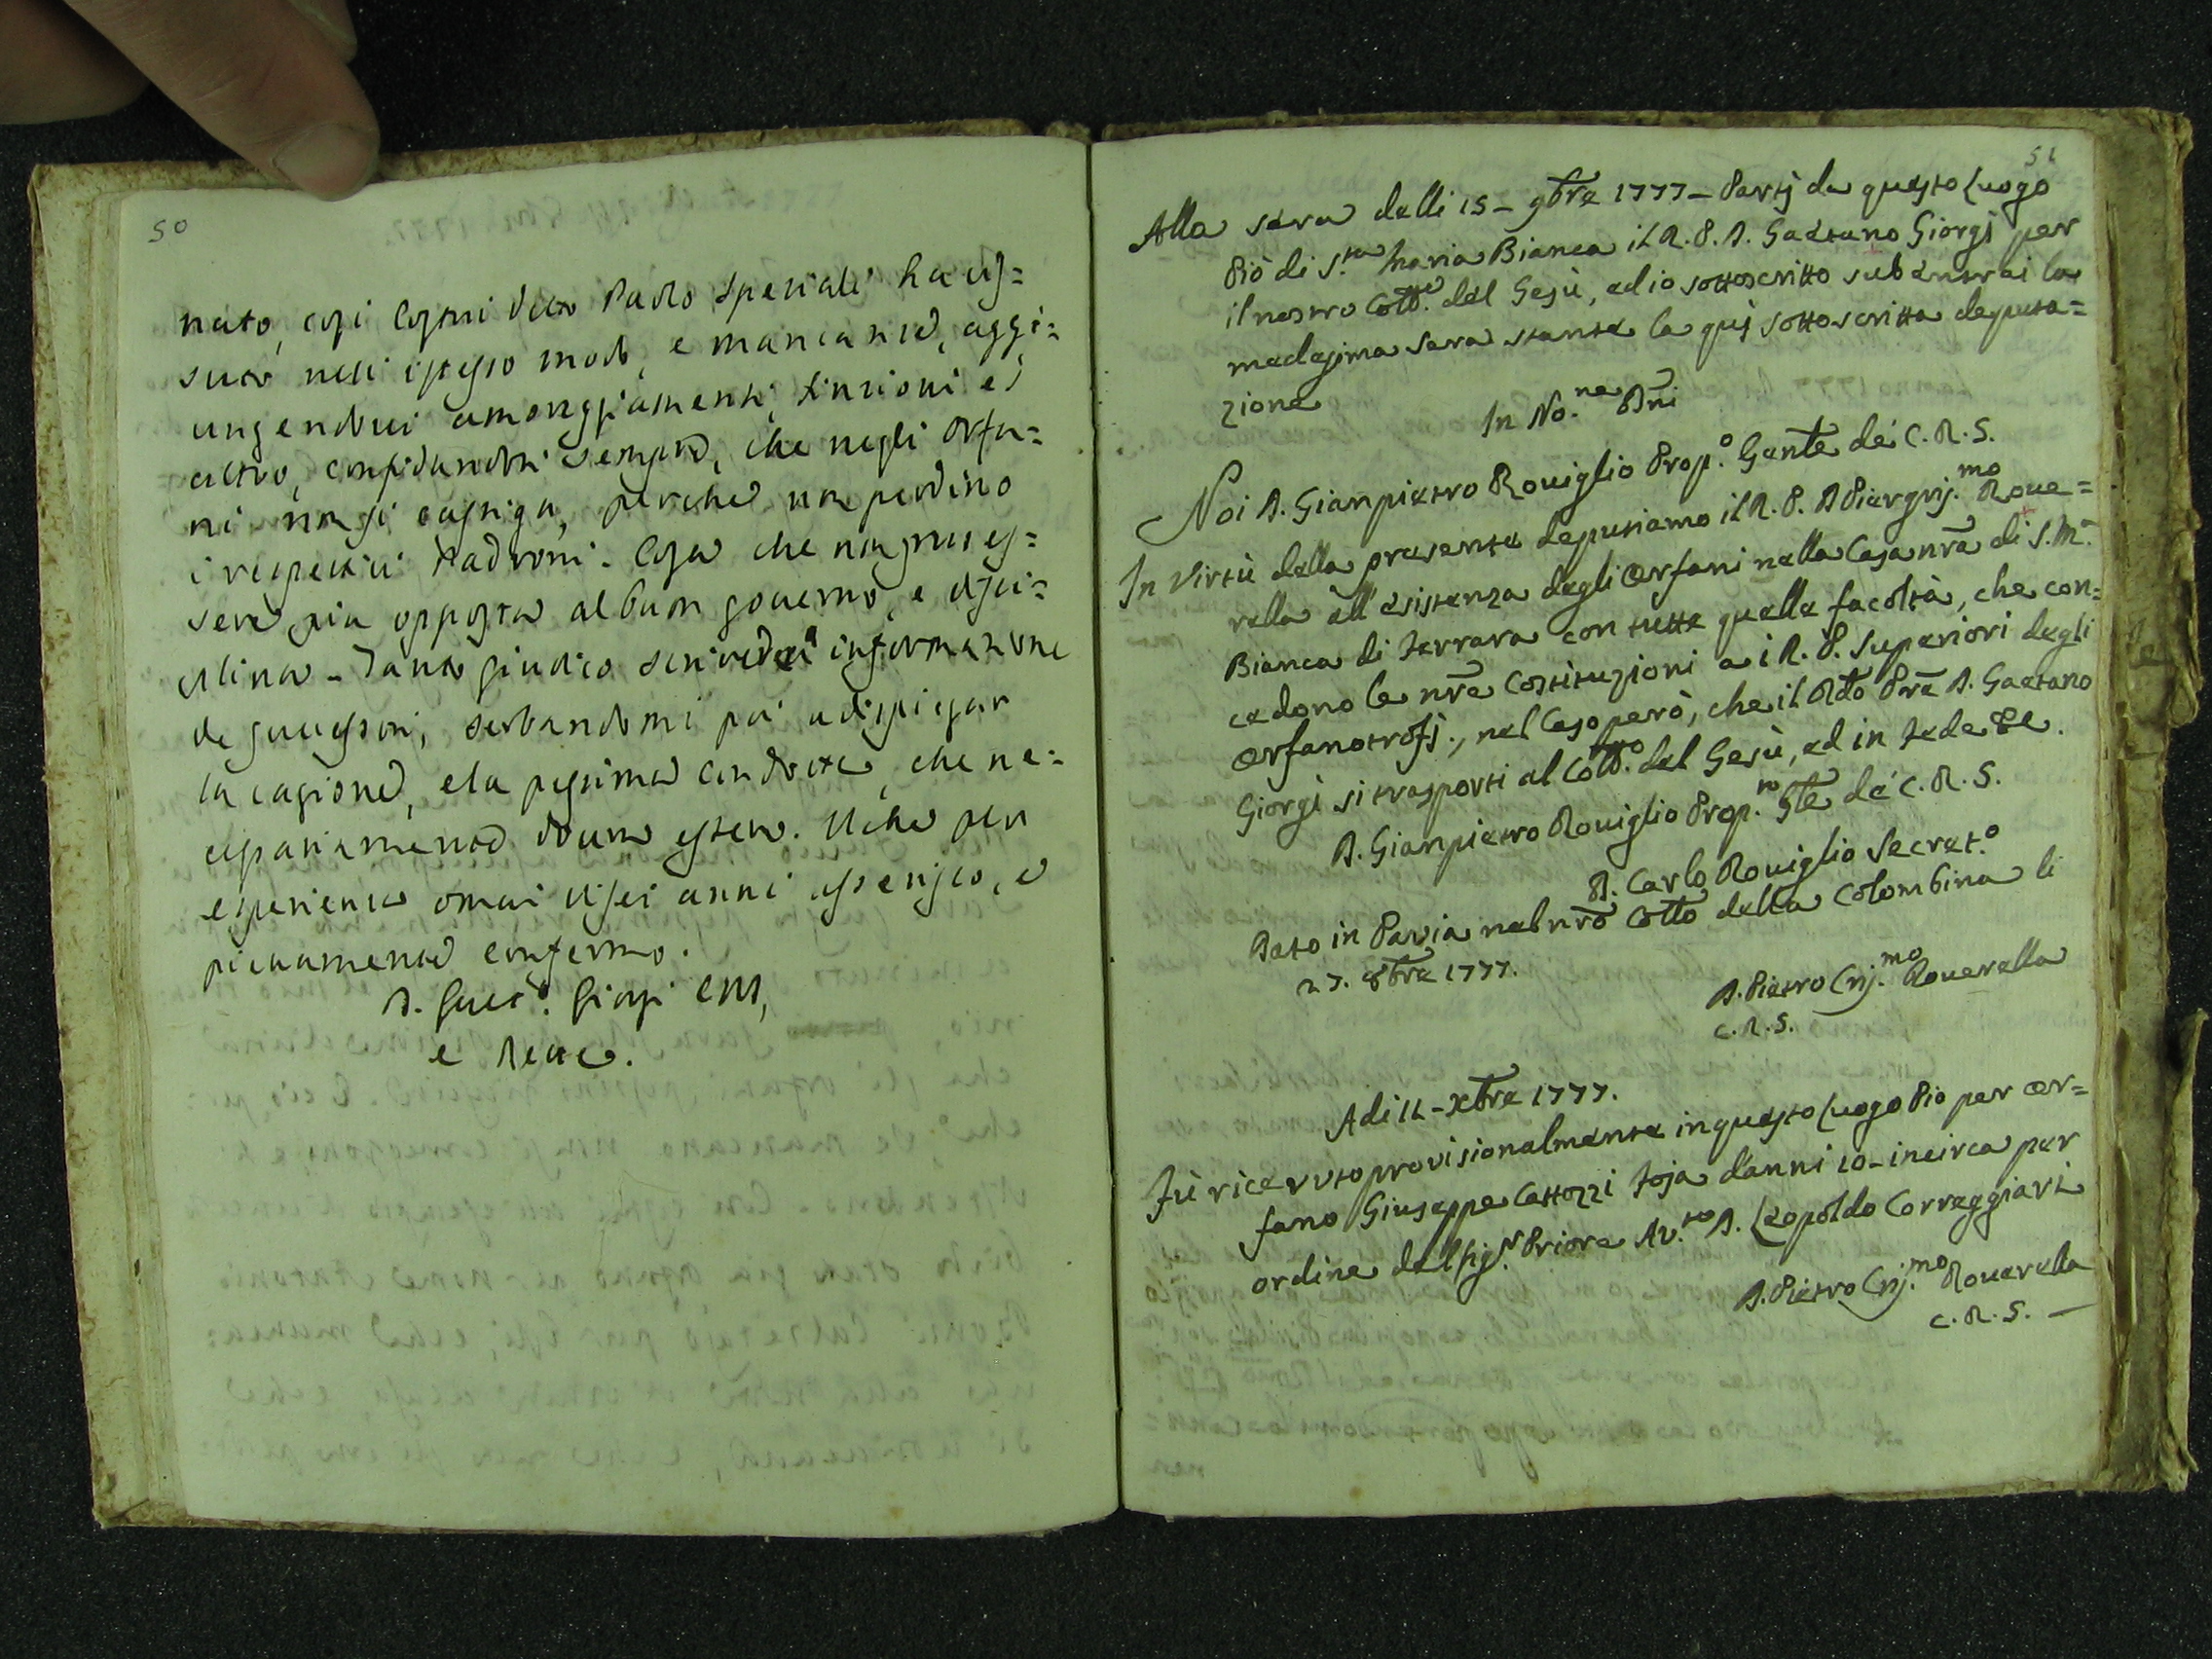 50
nato, così Costui detto Paolo Speziali ha us=
sato nell istesso modo, e mancante, aggi=
ungendovi amoreggiamenti, finzioni ed
altro, confidandosi sempre, che negli Orfa=
ni non si castiga, perche non perdino
i rispettivi Padroni. Cosa che non puo es=
sere piu opposta al buon governo, e disci=
plina. Tanto giudico scrivere a informazione
de successori, serbandomi poi a dispiegar
la cagione, e la pessima condotta, che ne=
cessariamente dovea essere. Il che per
esperienza omai di sei anni asserisco, e
pienamente confermo.
D. Gaet.o Giorgi CRS,
e Rettore.
51
Alla sera delli 15 - 9bre 1777 - Partj da questo Luogo
Pio di S.ta Maria Bianca il R. P. D. Gaetano Giorgi per
il nostro Coll.o del Gesù, ed io sottoscritto subentrai la
medesima sera stante la quj sottoscritta deputa=
zione
In No.ne Dñi
Noi D. Gianpietro Roviglio Prep.o Gen̄le de' C. R. S.
In Virtù della presente deputiamo il R. P. D Piergrij.mo Rove=
rella all'esistenza degli Orfani nella Casa nr̄a di S. M.a
Bianca di Ferrara con tutte quelle facoltà, che con=
cedono le nr̄e Costituzioni a i R. P. Superiori degli
Orfanotrofj, nel Caso però, che il Rd̄o Pr̄e D. Gaetano
Giorgi si trasporti al Coll.o del Gesù, ed in fede &c.
D. Gianpietro Roviglio Prep.to Gle de' C. R. S.
D. Carlo Roviglio Secret.o
Dato in Pavia nel nr̄o Collo della Colombina li
27. 8bre 1777.
D. Pietro Grij.mo Roverella
C. R. S.
Adi 11 - Xbre 1777.
Fù ricevuto provisionalmente in questo Luogo Pio per Or=
fano Giuseppe Cattozzi Foja d'anni 10 - incirca per
ordine del Sig.r Priore Av.to D. Leopoldo Correggiari
D. Pietro Grij.mo Roverella
C. R. S. —